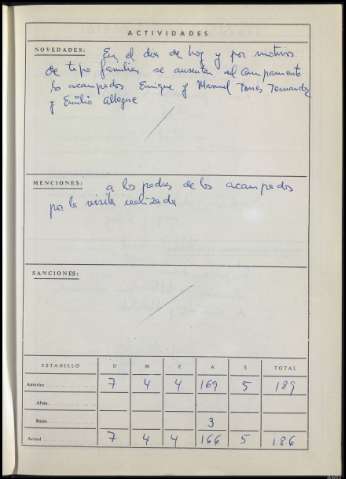 ACTIVIDADES
NOVEDADES: En el dia de hoy y por motivos
de tipo familiar se ausentan del campamento
los acampados Enrique y Manuel Torres Fernandez
y Emilio Allegue
MENCIONES: a los padres de los acampados
por la visita realizada
SANCIONES:
ESTADILLO D M E A S TOTAL
Anterior 7 4 4 169 5 189
Altas
Bajas 3
Actual 7 4 4 166 5 186